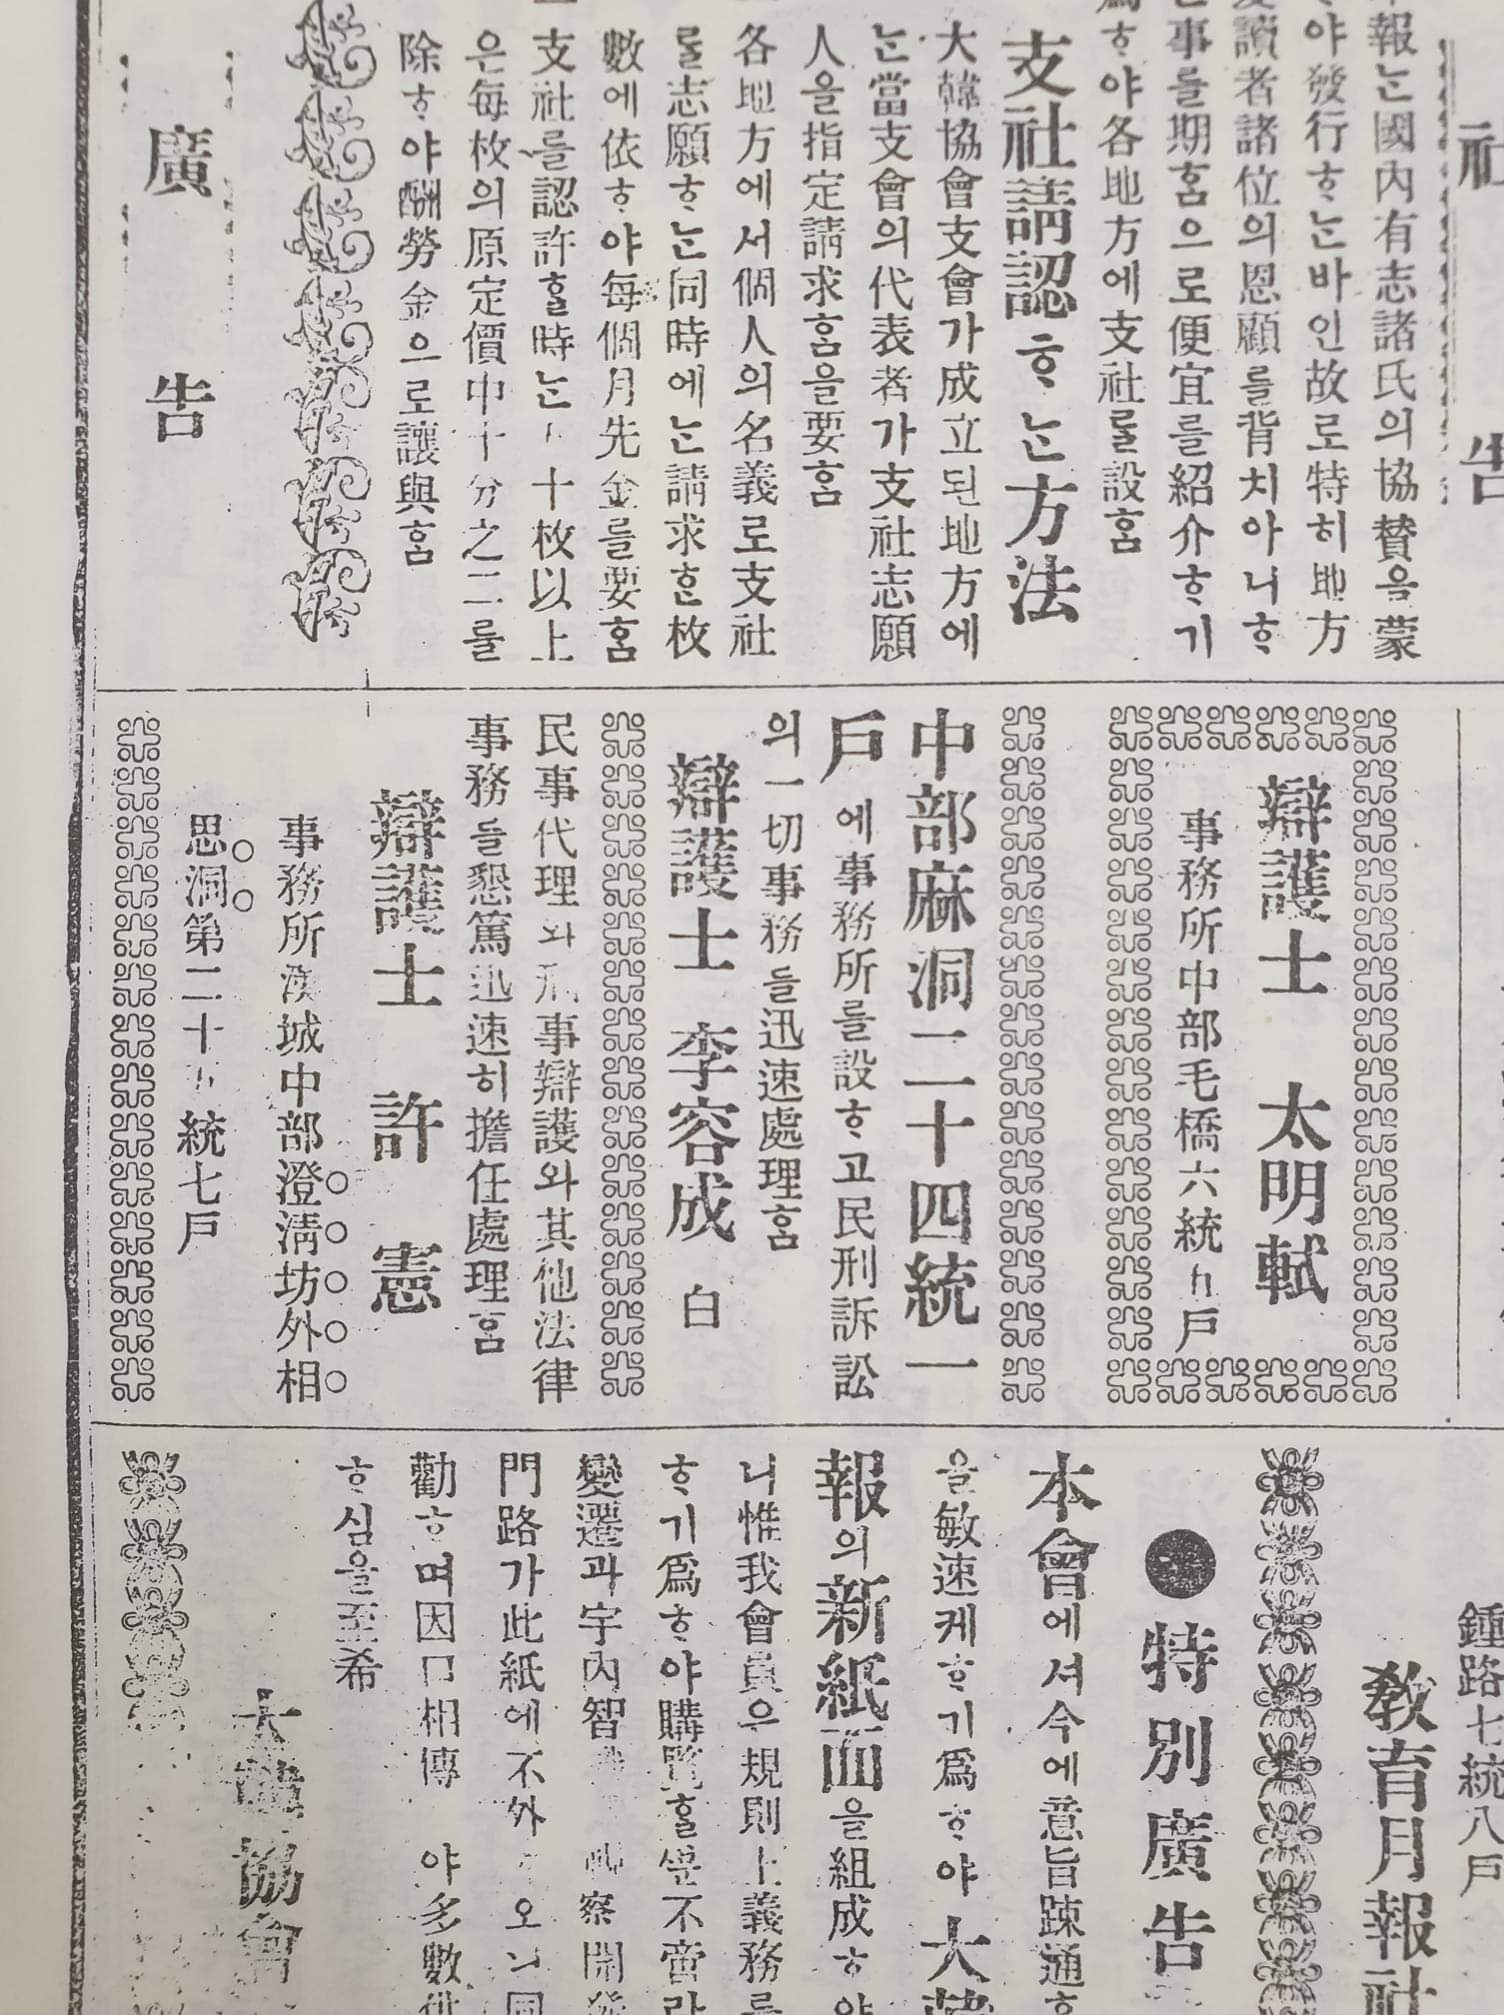 社告
報는國內有志諸氏의協贊을蒙
ᄒᆞ야發行ᄒᆞ는바인故로特히地方
愛讀者諸位의恩顧를背치아니ᄒᆞ
事를期홈으로便宜를紹介ᄒᆞ기
爲ᄒᆞ야各地方에支社를設홈
支社請認ᄒᆞ는方法
大韓協會支會가成立된地方에
는當支會의代表者가支社志願
人을指定請求홈을要홈
各地方에서個人의名義로支社
를志願ᄒᆞ는同時에는請求ᄒᆞᆫ枚
數에依ᄒᆞ야每個月先金를要홈
支社를認許ᄒᆞᆯ時는 十枚以上
은每枚의原定價中十分之二를
除ᄒᆞ야酬勞金으로讓與홈
廣告
辯護士 太明軾
事務所中部毛橋六統 戶
中部麻洞二十四統一
戶에事務所를設ᄒᆞ고民刑訴訟
의一切事務들迅速處理홈
辯護士 李容成 白
民事代理와刑事辯護와其他法律
事務들懇篤迅速히擔任處理홈
辯護士 許憲
事務所漢城中部澄淸坊外相
思洞第二十五統七戶
鍾路七統八戶
敎育月報社
●特別廣告
本會에셔今에意旨疎通ᄒᆞ
을敏速케ᄒᆞ기爲ᄒᆞ야大韓
報의新紙面을組成ᄒᆞ야
니惟我會員으規則上義務를
ᄒᆞ기爲ᄒᆞ야購覽ᄒᆞᆯᄲᅮᆫ不啻라
變遷과宇內智 察開發
門路가此紙에不外 오니同
勸ᄒᆞ며因口相傳 야多數
ᄒᆞ심을至希
大韓協會